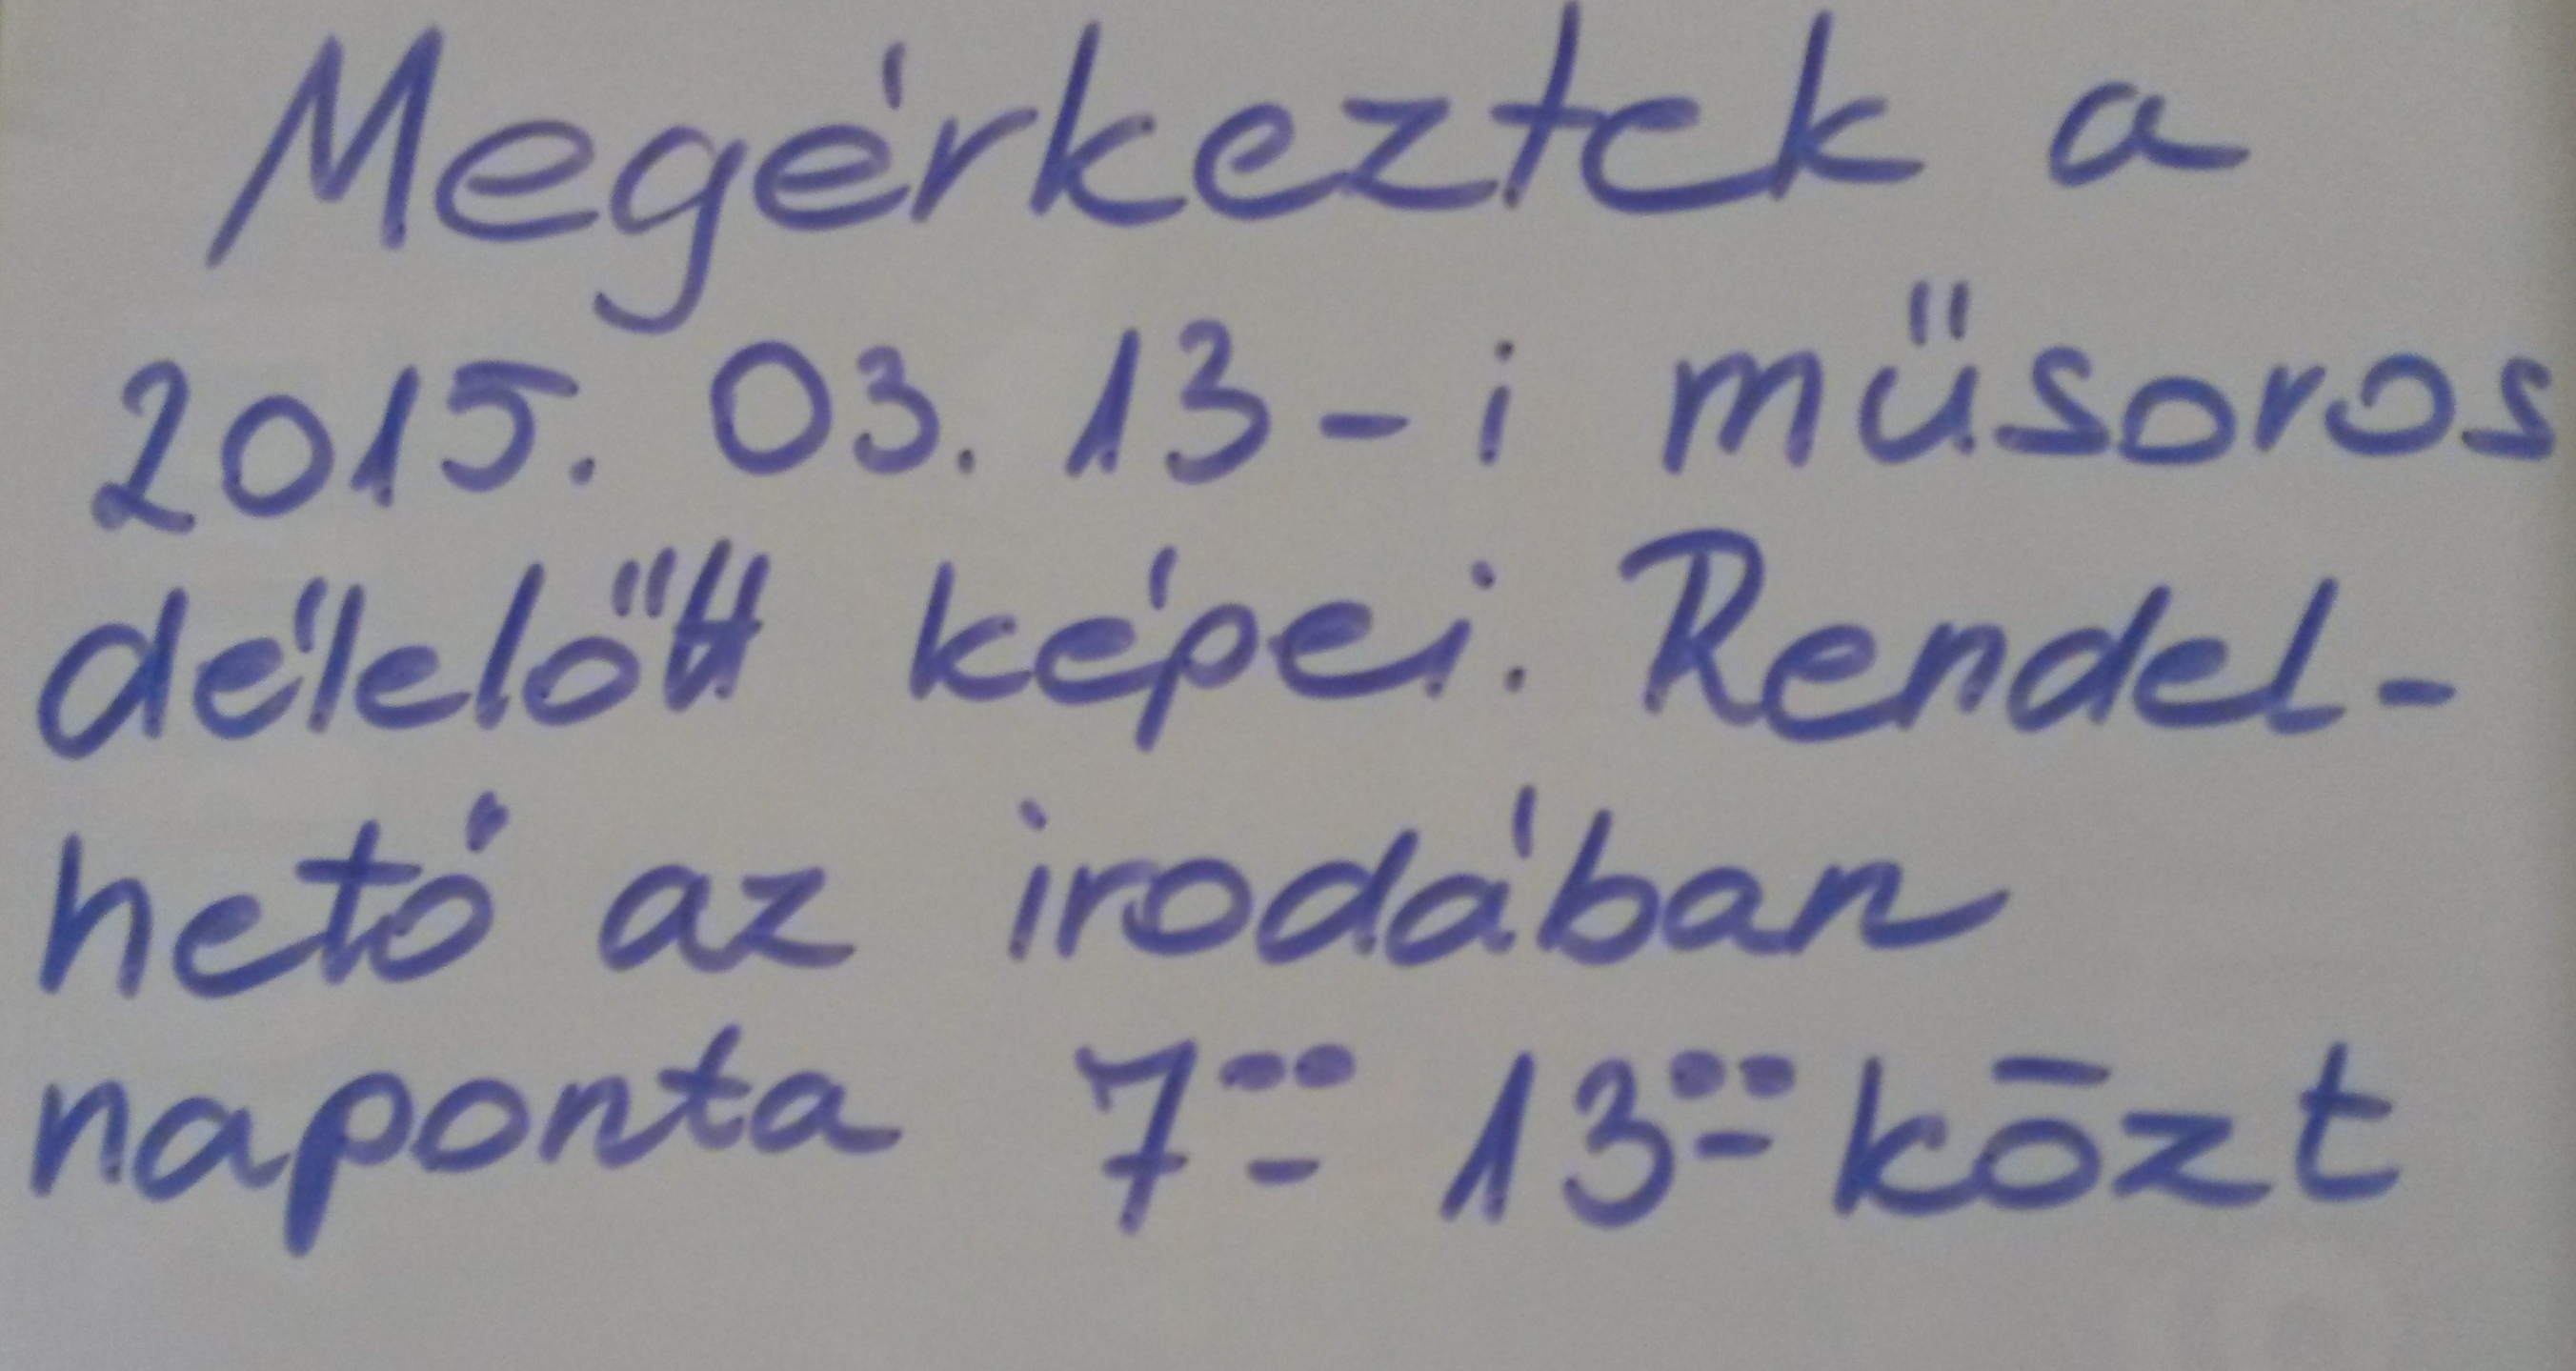 Megérkeztek a
2015. 03. 13-i műsoros
délelőtt képei. Rendel-
hető az irodában
naponta 7⁰⁰ 13⁰⁰ közt